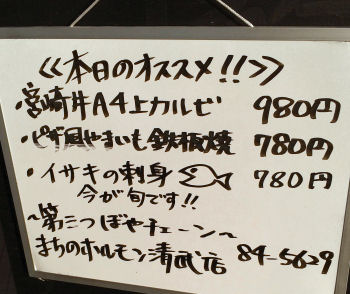 ≪本日のオススメ!!≫
・宮崎牛A4上カルビ 980円
・ピザ風やまいも鉄板焼 780円
・イサキの刺身 780円
今が旬です!!
~第三つぼやチェーン~
まちのホルモン清武店 84-5629